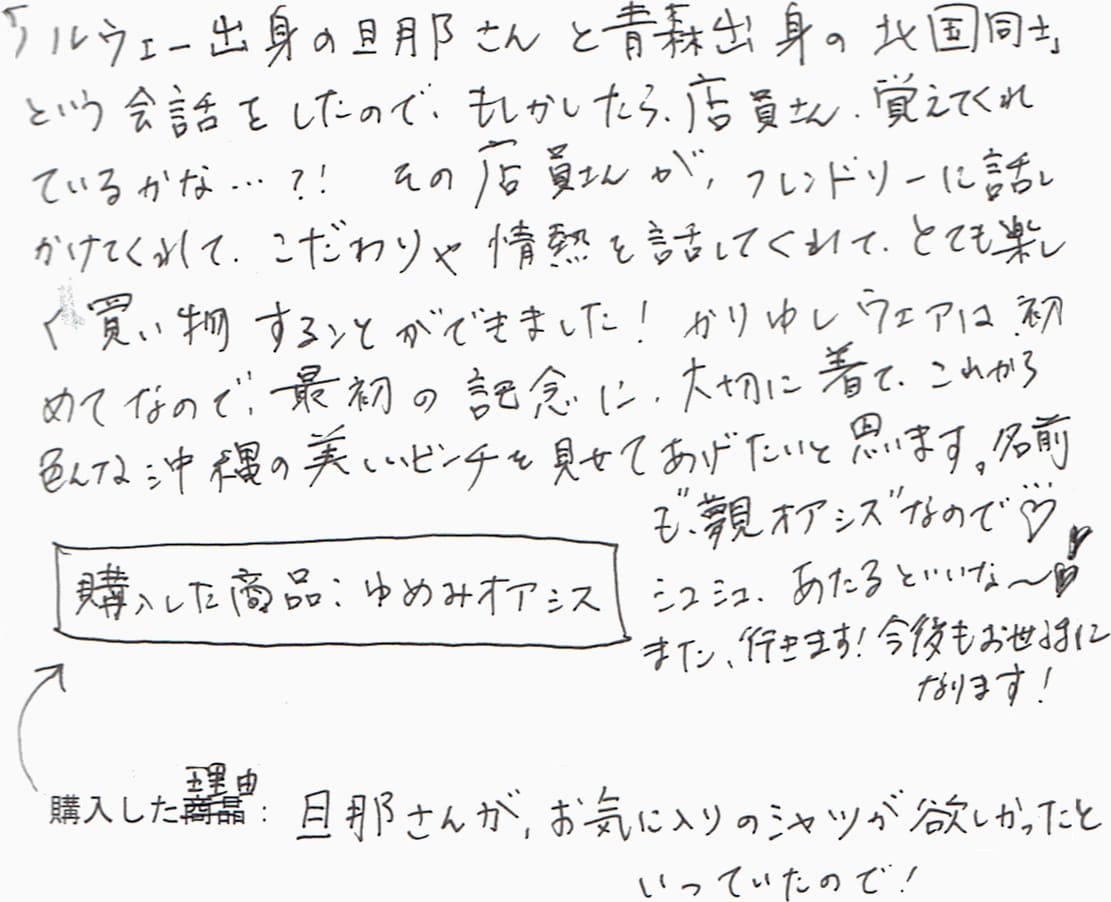 「ノルウェー出身の旦那さんと青森出身の北国同士」
という会話をしたので、もしかしたら、店員さん、覚えてくれ
ているかな…?! その店員さんが、フレンドリーに話し
かけてくれて、こだわりや情熱を話してくれて、とても楽し
く買い物することができました! かりゆしウェアは、初
めてなので、最初の記念に、大切に着て、これから
色んな沖縄の美しいビーチを見せてあげたいと思います。名前
も、"夢見オアシス"なので♡
シュシュ、あたるといいな〜♥
また、行きます!今後もお世話に
なります!
購入した商品:ゆめみオアシス
購入した理由:旦那さんが、お気に入りのシャツが欲しかったと
いっていたので!